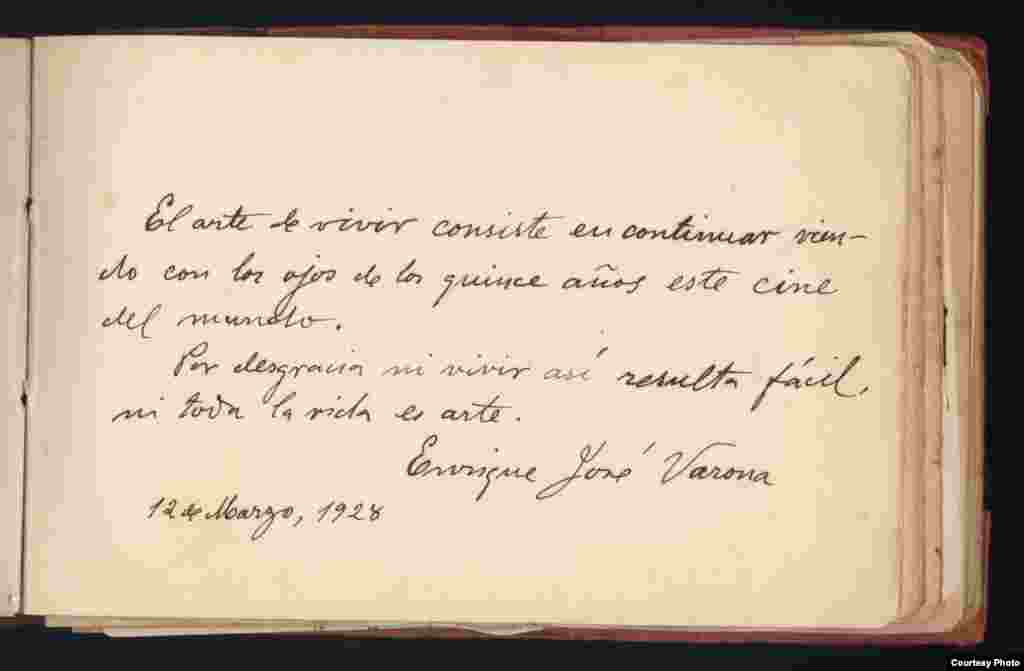 El arte de vivir consiste en continuar vien-
do con los ojos de los quince años este cine
del mundo.
Por desgracia ni vivir así resulta fácil,
ni toda la vida es arte.
Enrique José Varona
12 de Marzo, 1928
Courtesy Photo